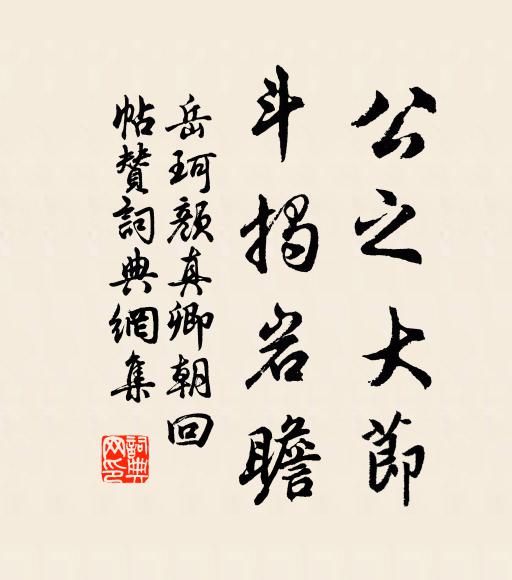 公之大節
斗揭岩瞻
岳珂顏真卿朝回
帖贊詞典網集
詞典
网印